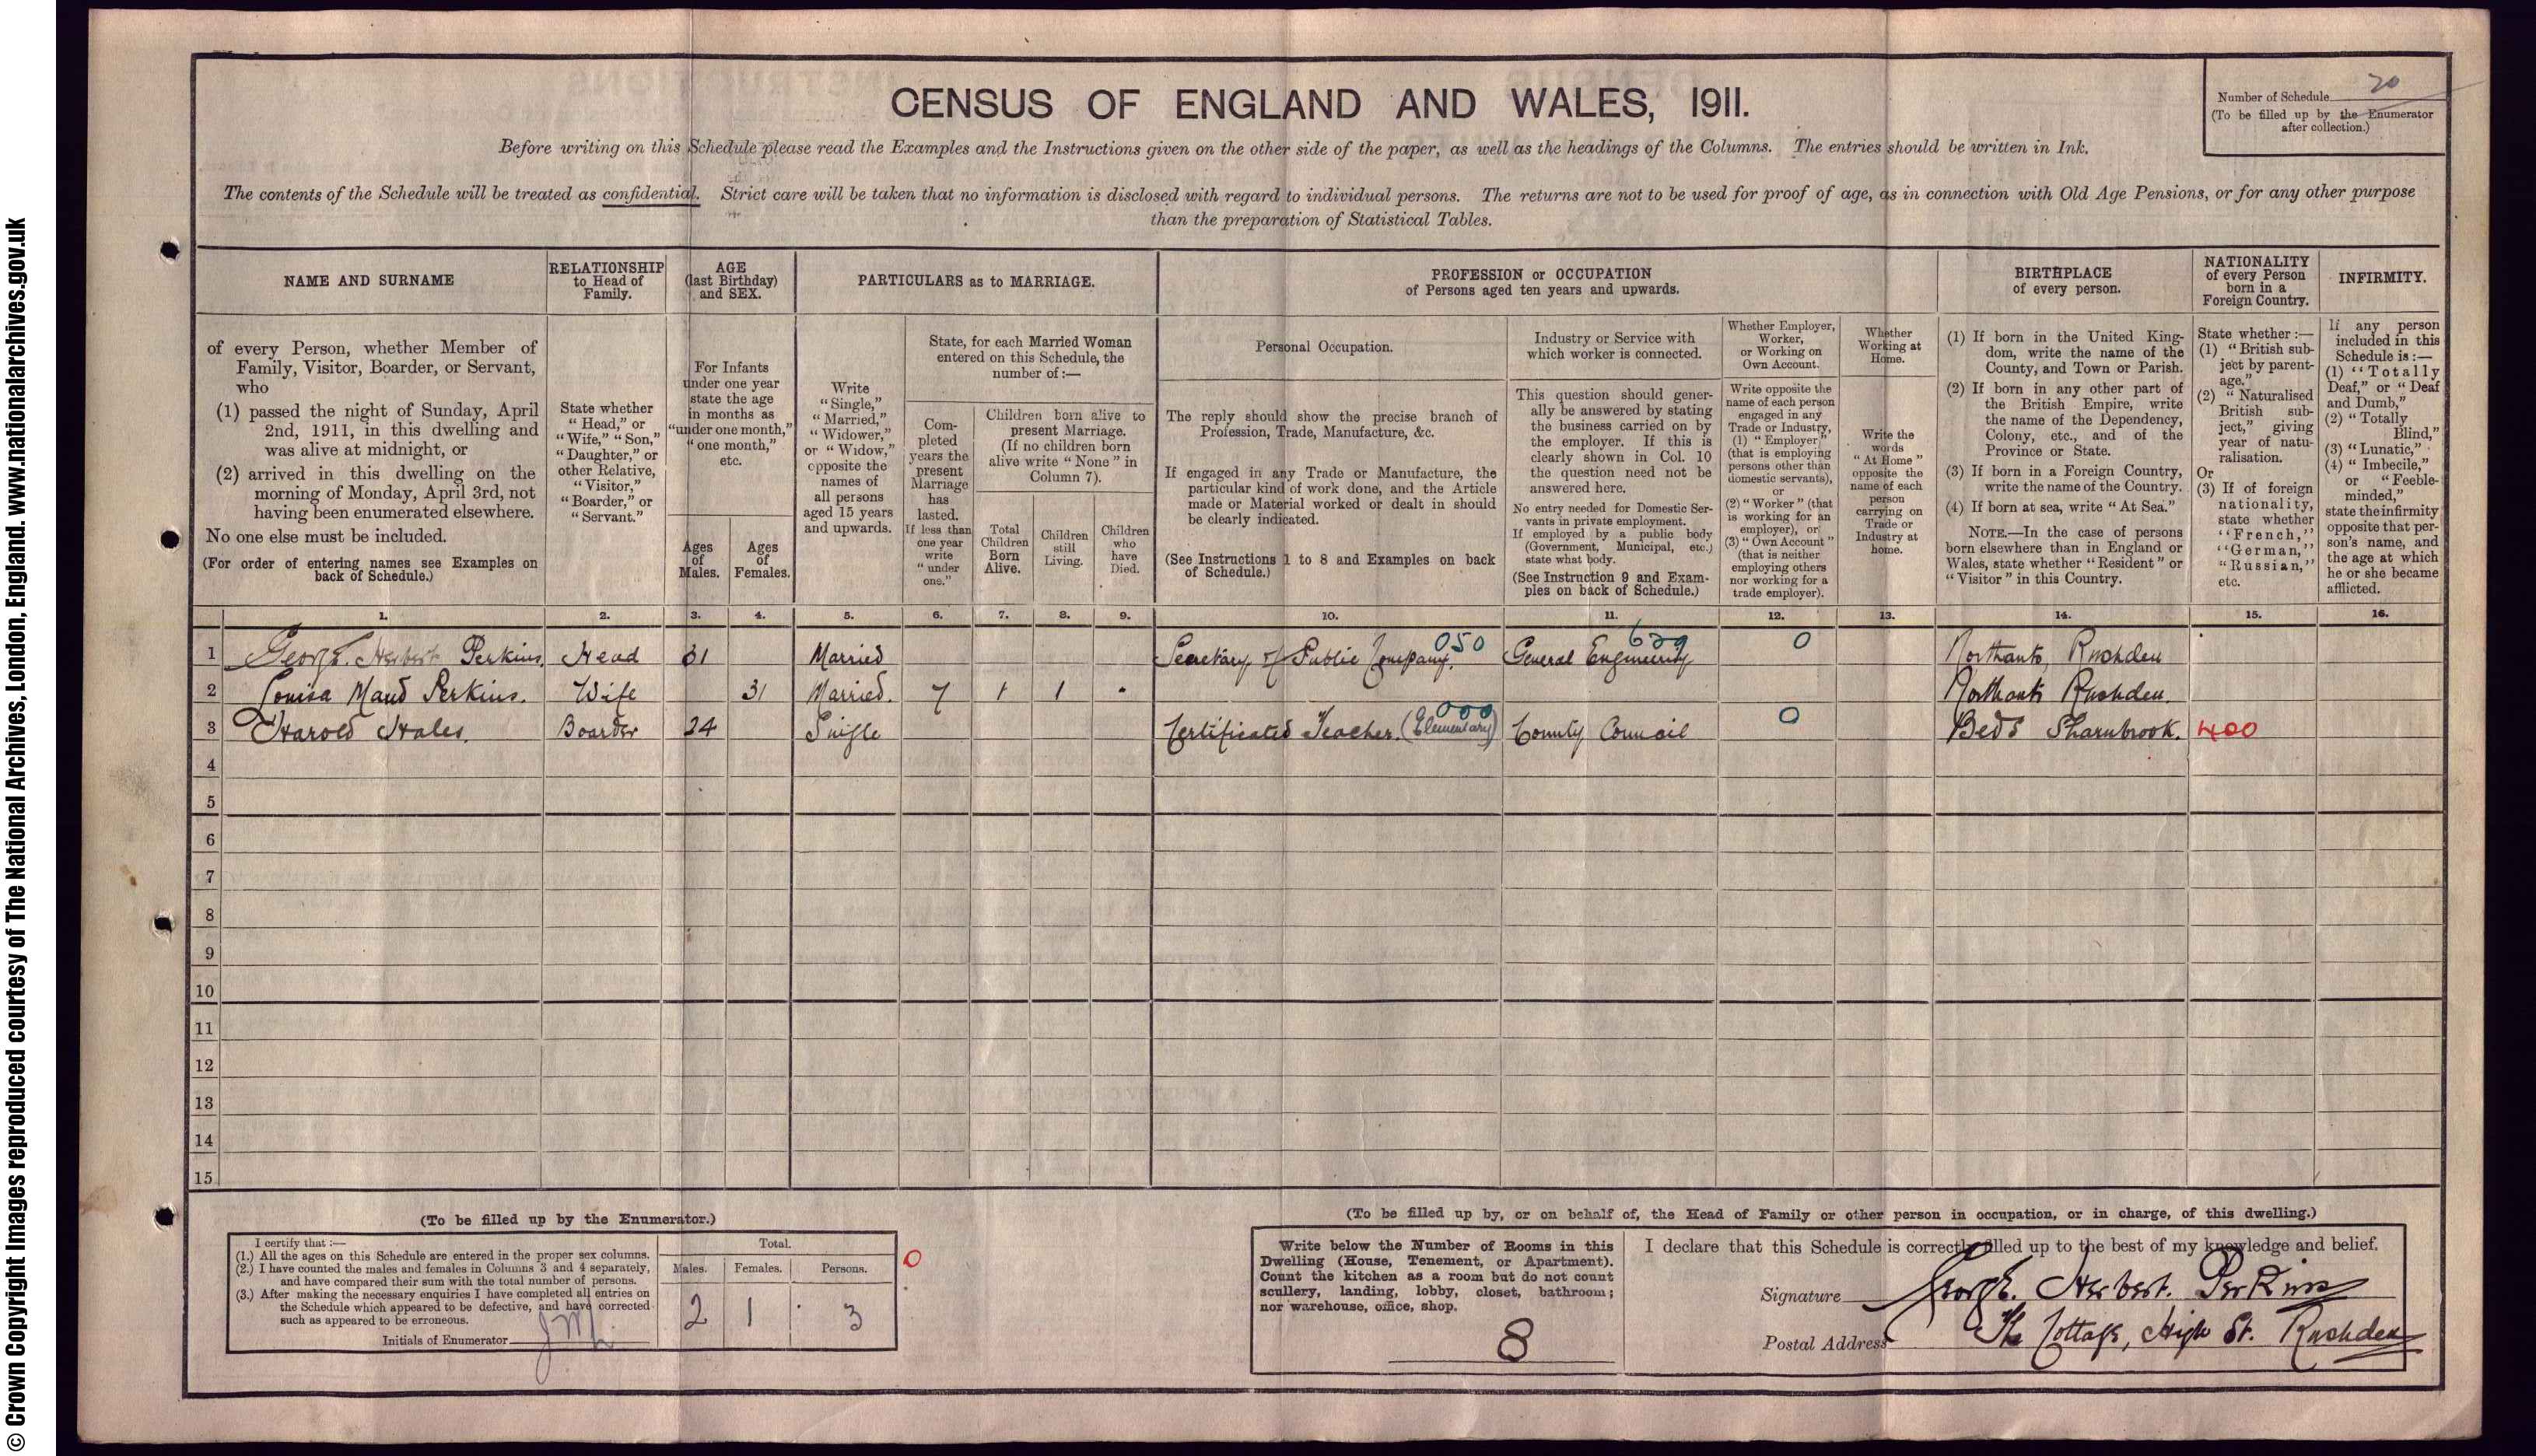 © Crown Copyright Images reproduced courtesy of The National Archives, London, England. www.nationalarchives.gov.uk
CENSUS OF ENGLAND AND WALES, 1911.
Number of Schedule 20
(To be filled up by the Enumerator
after collection.)
Before writing on this Schedule please read the Examples and the Instructions given on the other side of the paper, as well as the headings of the Columns. The entries should be written in Ink.
The contents of the Schedule will be treated as confidential. Strict care will be taken that no information is disclosed with regard to individual persons. The returns are not to be used for proof of age, as in connection with Old Age Pensions, or for any other purpose
than the preparation of Statistical Tables.
NAME AND SURNAME
of every Person, whether Member of
Family, Visitor, Boarder, or Servant,
who
(1) passed the night of Sunday, April
2nd, 1911, in this dwelling and
was alive at midnight, or
(2) arrived in this dwelling on the
morning of Monday, April 3rd, not
having been enumerated elsewhere.
No one else must be included.
(For order of entering names see Examples on
back of Schedule.)
RELATIONSHIP
to Head of
Family.
State whether
"Head," or
"Wife," "Son,"
"Daughter," or
other Relative,
"Visitor,"
"Boarder," or
"Servant."
AGE
(last Birthday)
and SEX.
For Infants
under one year
state the age
in months as
"under one month,"
"one month,"
etc.
Ages
of
Males.
Ages
of
Females.
PARTICULARS as to MARRIAGE.
Write
"Single,"
"Married,"
"Widower,"
or "Widow,"
opposite the
names of
all persons
aged 15 years
and upwards.
State, for each Married Woman
entered on this Schedule, the
number of:—
Com-
pleted
years the
present
Marriage
has
lasted.
If less than
one year
write
"under
one."
Children born alive to
present Marriage.
(If no children born
alive write "None" in
Column 7).
Total
Children
Born
Alive.
Children
still
Living.
Children
who
have
Died.
PROFESSION or OCCUPATION
of Persons aged ten years and upwards.
Personal Occupation.
The reply should show the precise branch of
Profession, Trade, Manufacture, &c.
If engaged in any Trade or Manufacture, the
particular kind of work done, and the Article
made or Material worked or dealt in should
be clearly indicated.
(See Instructions 1 to 8 and Examples on back
of Schedule.)
Industry or Service with
which worker is connected.
This question should gener-
ally be answered by stating
the business carried on by
the employer. If this is
clearly shown in Col. 10
the question need not be
answered here.
No entry needed for Domestic Ser-
vants in private employment.
If employed by a public body
(Government, Municipal, etc.)
state what body.
(See Instruction 9 and Exam-
ples on back of Schedule.)
Whether Employer,
Worker,
or Working on
Own Account.
Write opposite the
name of each person
engaged in any
Trade or Industry,
(1) "Employer"
(that is employing
persons other than
domestic servants),
or
(2) "Worker" (that
is working for an
employer), or
(3) "Own Account"
(that is neither
employing others
nor working for a
trade employer).
Whether
Working at
Home.
Write the
words
"At Home"
opposite the
name of each
person
carrying on
Trade or
Industry at
home.
BIRTHPLACE
of every person.
(1) If born in the United King-
dom, write the name of the
County, and Town or Parish.
(2) If born in any other part of
the British Empire, write
the name of the Dependency,
Colony, etc., and of the
Province or State.
(3) If born in a Foreign Country,
write the name of the Country.
(4) If born at sea, write "At Sea."
NOTE.—In the case of persons
born elsewhere than in England or
Wales, state whether "Resident" or
"Visitor" in this Country.
NATIONALITY
of every Person
born in a
Foreign Country.
State whether:—
(1) "British sub-
ject by parent-
age."
(2) "Naturalised
British sub-
ject," giving
year of natu-
ralisation.
Or
(3) If of foreign
nationality,
state whether
"French,"
"German,"
"Russian,"
etc.
INFIRMITY.
If any person
included in this
Schedule is:—
(1) "Totally
Deaf," or "Deaf
and Dumb,"
(2) "Totally
Blind,"
(3) "Lunatic,"
(4) "Imbecile,"
or "Feeble-
minded,"
state the infirmity
opposite that per-
son's name, and
the age at which
he or she became
afflicted.
1. 2. 3. 4. 5. 6. 7. 8. 9. 10. 11. 12. 13. 14. 15. 16.
1 George Herbert Perkins Head 31 Married Secretary of Public Company. 050 General Engineering 629 0 Northants, Rushden
2 Louisa Maud Perkins. Wife 31 Married. 7 1 1 Northants Rushden.
3 Harold Hales. Boarder 24 Single Certificated Teacher. (Elementary) 000 County Council 0 Beds Sharnbrook. 400
4
5
6
7
8
9
10
11
12
13
14
15
(To be filled up by the Enumerator.)
I certify that:—
(1.) All the ages on this Schedule are entered in the proper sex columns.
(2.) I have counted the males and females in Columns 3 and 4 separately,
and have compared their sum with the total number of persons.
(3.) After making the necessary enquiries I have completed all entries on
the Schedule which appeared to be defective, and have corrected
such as appeared to be erroneous.
Initials of Enumerator
Total.
Males. Females. Persons.
2 1 3
0
(To be filled up by, or on behalf of, the Head of Family or other person in occupation, or in charge, of this dwelling.)
Write below the Number of Rooms in this
Dwelling (House, Tenement, or Apartment).
Count the kitchen as a room but do not count
scullery, landing, lobby, closet, bathroom;
nor warehouse, office, shop.
8
I declare that this Schedule is correctly filled up to the best of my knowledge and belief.
Signature George Herbert. Perkins
Postal Address The Cottage, High St. Rushden